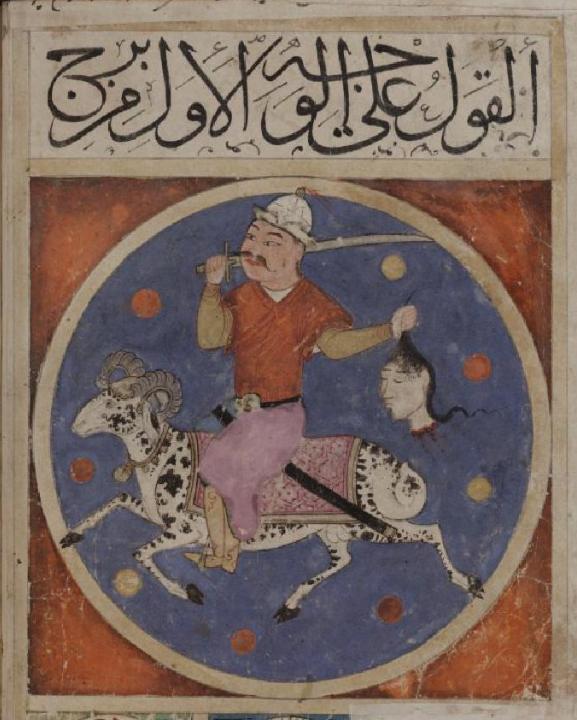 القول على الوجه الأول من برج